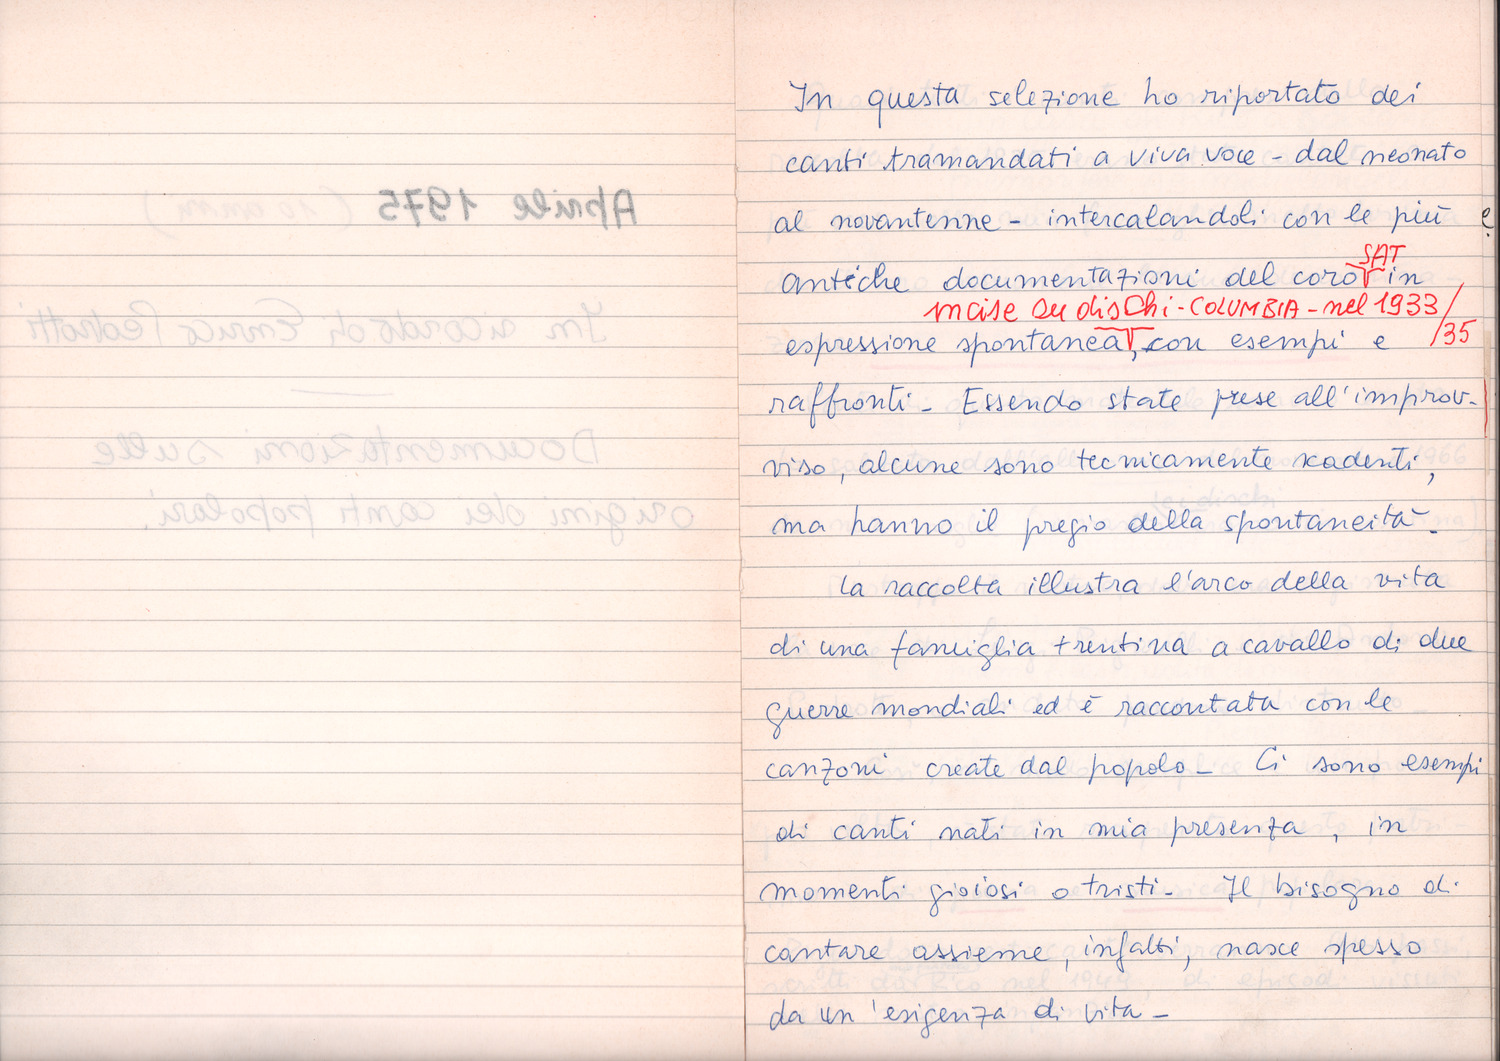 Aprile 1975 (10 anni)
In ricordo di Enrico Pedrotti
Documentazioni sulle
origini dei canti popolari.
In questa selezione ho riportato dei
canti tramandati a viva voce - dal neonato
al novantenne - intercalandoli con le più
antiche documentazioni del coro SAT in
incise su dischi - COLUMBIA - nel 1933/35
espressione spontanea, con esempi e
raffronti - Essendo state prese all'improv-
viso, alcune sono tecnicamente scadenti,
ma hanno il pregio della spontaneità -
La raccolta illustra l'arco della vita
di una famiglia trentina a cavallo di due
guerre mondiali ed è raccontata con le
canzoni create dal popolo - Ci sono esempi
di canti nati in mia presenza, in
momenti gioiosi o tristi - Il bisogno di
cantare assieme, infatti, nasce spesso
da un'esigenza di vita -